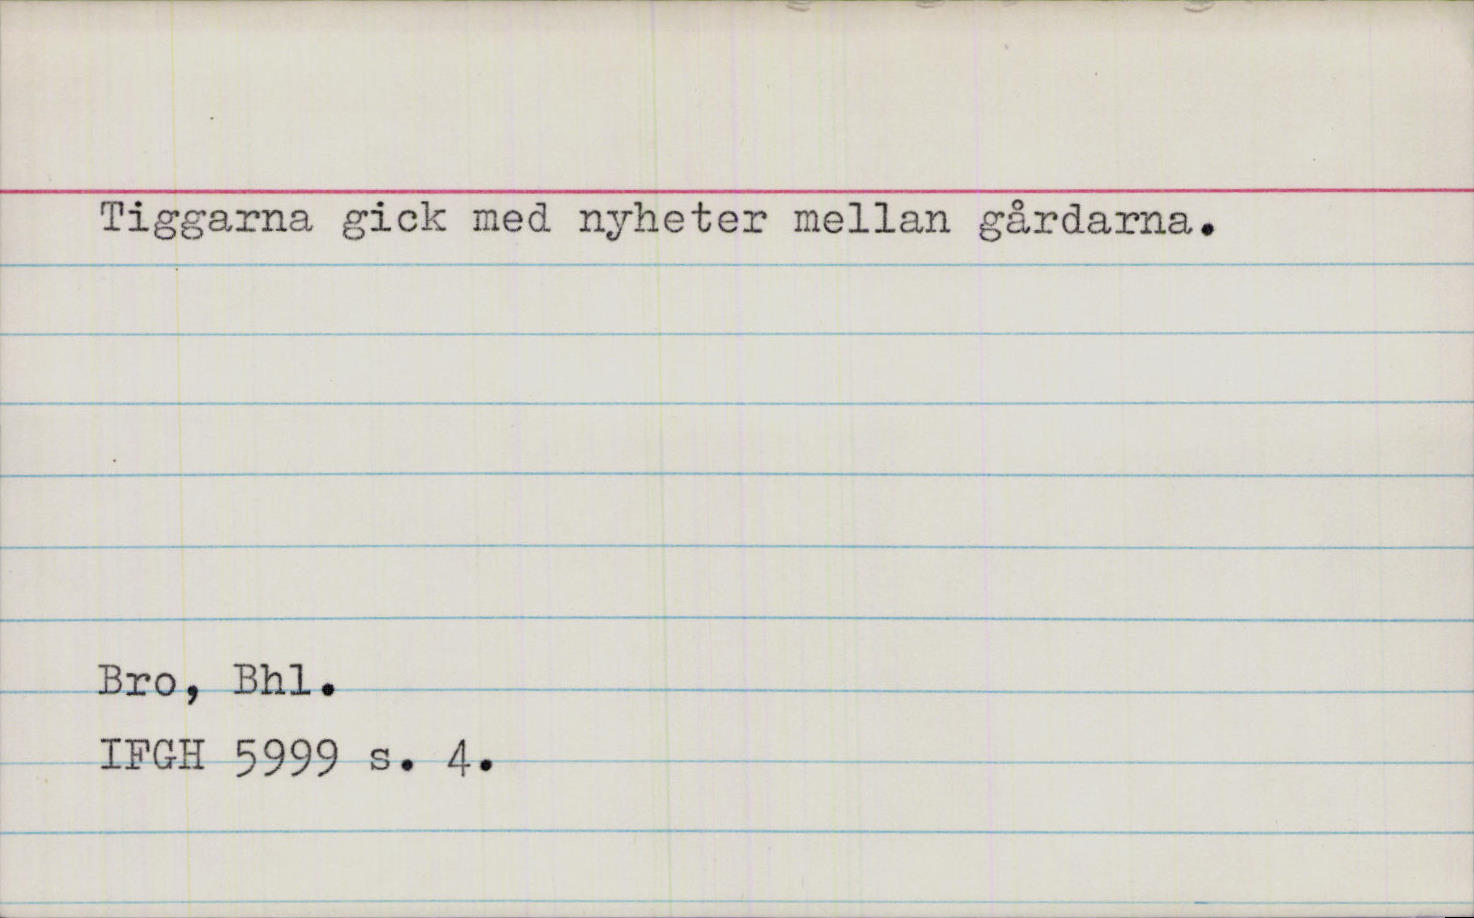 Tiggarna gick med nyheter mellan gårdarna.
Bro, Bhl.
IFGH 5999 s. 4.